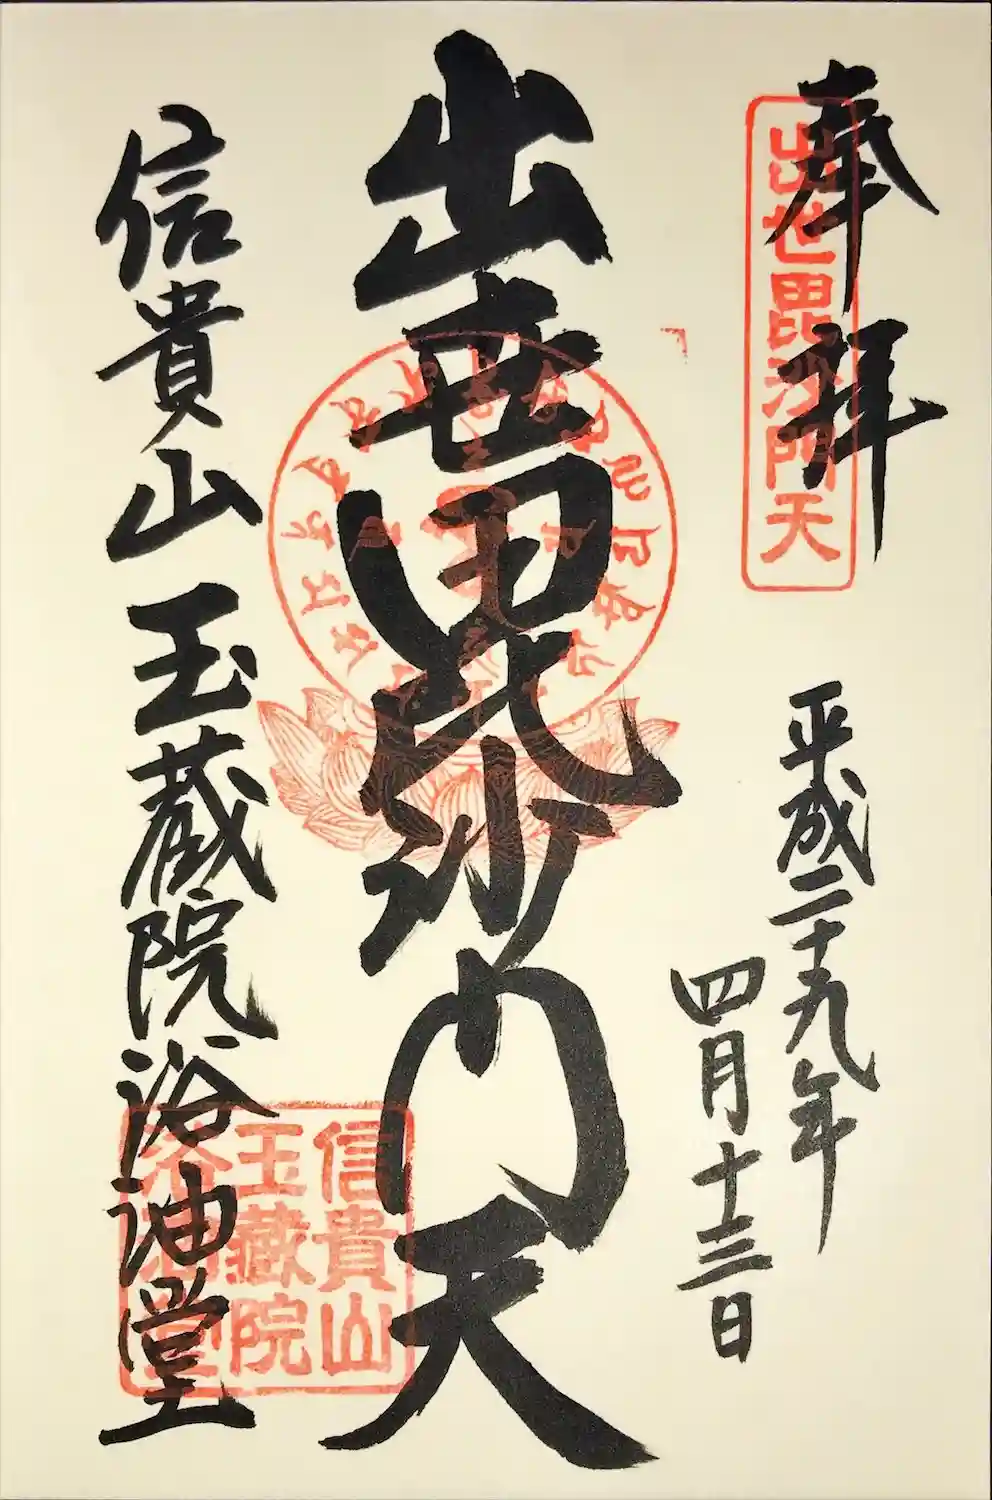 奉拝
出世毘沙門天
平成二十九年
四月十三日
出世毘沙門天
信貴山玉蔵院浴油堂
信貴山
玉蔵院
浴油堂